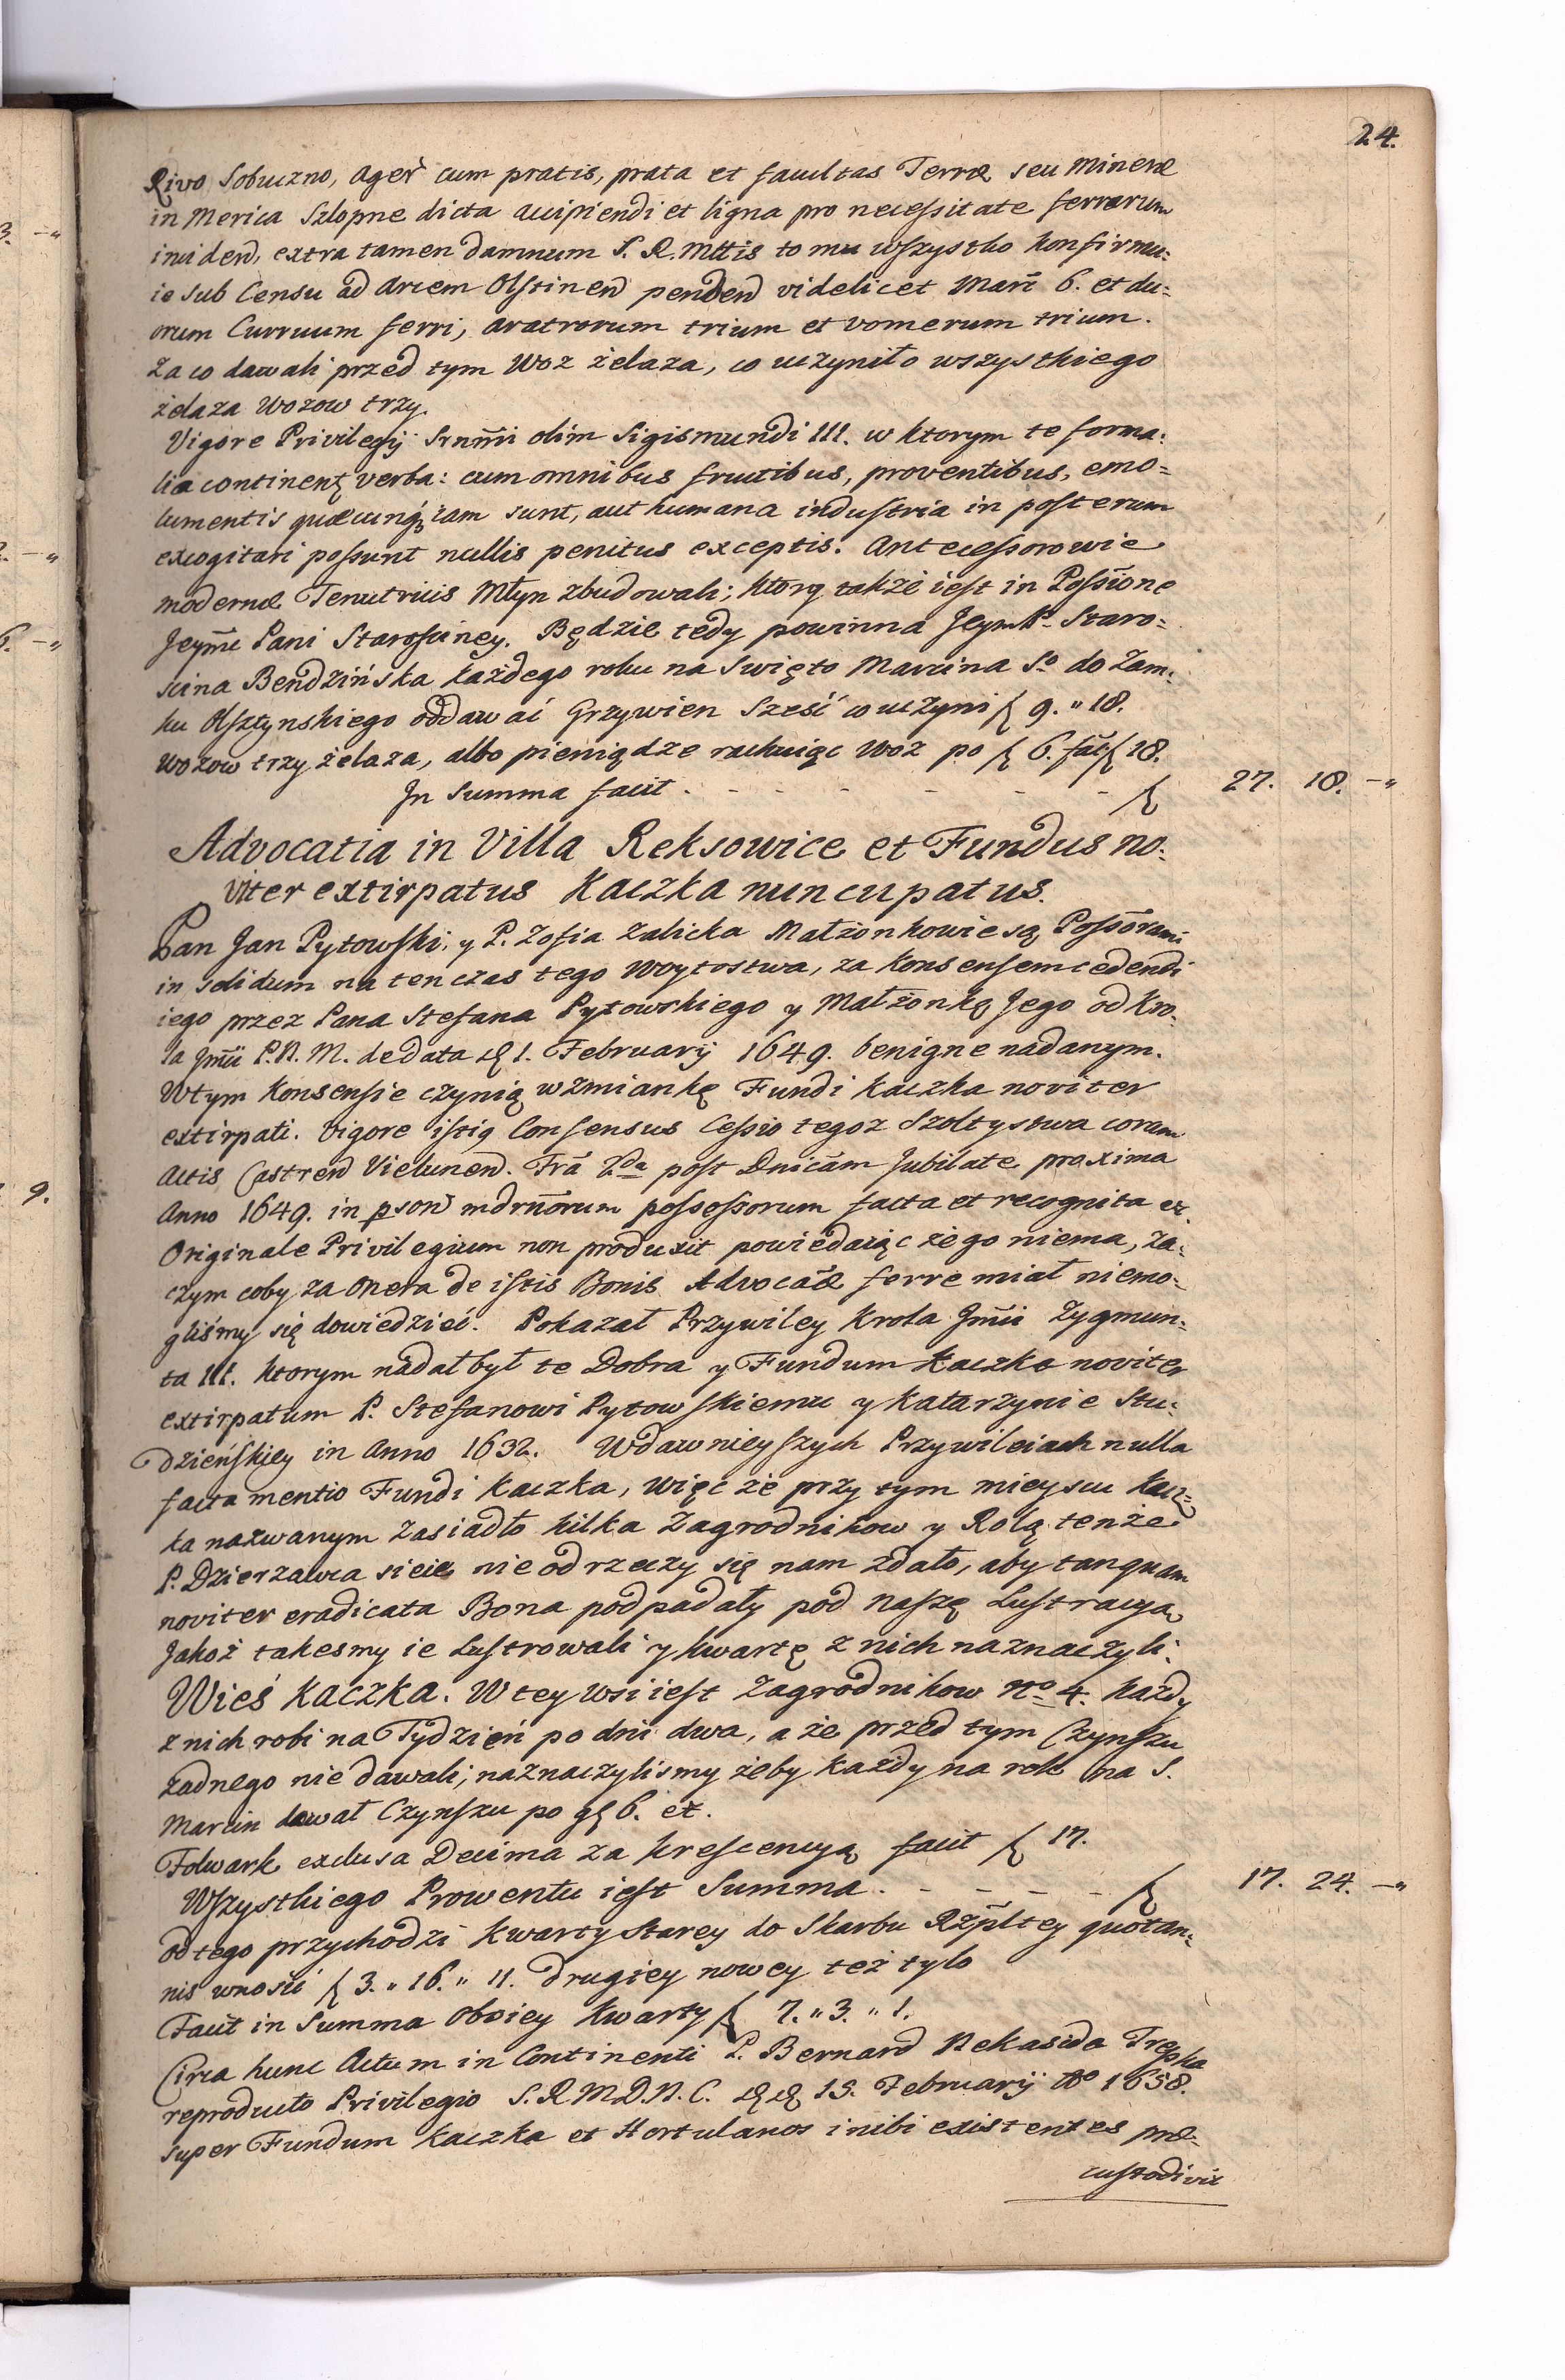 24.
Rivo Sobuczno, ager cum pratis, prata et facultas Terræ seu Mineræ
in Merica Szlopne dicta accipiendi et ligna pro necessitate ferrarum
inciden, extra tamen damnum S. R. Mttis to mu wszystko konfirmu:
ie sub Censu ad Arcem Olstinen penden videlicet Marc 6. et du=
orum Curruum ferri, aratrorum trium et vomerum trium.
Za co dawali przed tym Woz żelaza, co uczyniło wszystkiego
żelaza Wozow trzy.
Vigore Privilegij Srnm̄i olim Sigismundi III. w ktorym te forma:
lia continent verba: cum omnibus fructibus, proventibus, emo=
lumentis quæcunq iam sunt, aut humana industria in posterum
excogitari possunt nullis penitus exceptis. Antecessorowie
modernæ Tenutricis Młyn zbudowali; ktory także iest in Possione
Jeym̄c Pani Starosciney. Będzie tedy powinna Jeym P. Staro=
scina Bendzińska każdego roku na Swięto Marcina So do Zam:
ku Olsztynskiego oddawać Grzywien Sześć co uczyni f 9. " 18.
Wozow trzy żelaza, albo pieniądze rachuiąc Woz po f 6. fac f 18.
Jn Summa facit . - - - - - - f 27. 18. -"
Advocatia in Villa Reksowice et Fundus no:
viter extirpatus Kaczka nuncupatus.
Pan Jan Pytowski, y P. Zofia Zalicka Małżonkowie są Possōrami
in solidum na ten czas tego Woytostwa, za konsensem cedendi
iego przez Pana Stefana Pytowskiego y Małżonkę Jego od Kro:
la Jm̄ci P. N. M. de data 1. Februarij 1649. benigne nadanym.
W tym Konsensie czynią wzmiankę Fundi Kaczka noviter
extirpati. Vigore istiq Consensus Cessio tegoz Szoltystwa coram
Actis Castren Vielunen. Fra 2da post Dnicam Jubilate proxima
Anno 1649. in pson mdrn̄orum possessorum facta et recognita ex.
Originale Privilegium non produxit powiedaiąc że go niema, Za:
czym coby za onera de istis Bonis Advocaæ ferre miał niemo:
gliśmy się dowiedzieć. Pokazał Przywiley Krola Jm̄ci Zygmun:
ta III. ktorym nadał był te Dobra y Fundum Kaczka noviter
extirpatum P. Stefanowi Pytowskiemu y Katarzynie Stu:
dzieńskiey in Anno 1632. W dawnieyszych Przywileiach nulla
facta mentio Fundi Kaczka, Więc że przy tym mieyscu Kacz=
ka nazwanym zasiadło kilka Zagrodnikow y Rolą tenże
P. Dzierzawca sieie nie od rzeczy się nam zdało, aby tanquam
noviter eradicata Bona podpadały pod naszę Lustracyą
Jakoż takesmy ie Lustrowali y kwartę z nich naznaczyli.
Wieś Kaczka. W tey Wsi iest Zagrodnikow No 4. każdy
z nich robi na Tydzień po dni dwa, a że przed tym Czynszu
żadnego nie dawali; naznaczylismy żeby każdy na rok na S.
Marcin dawał Czynszu po g 6. et.
Folwark exclusa Decima za krescencyą facit f 17.
Wszystkiego Prowentu iest Summa . - - - - f 17. 24. -"
od tego przychodzi Kwarty starey do Skarbu Rzpltey quotan:
nis wnosić f 3. " 16. " 11. drugiey nowey też tylo
Facit in Summa oboiey Kwarty f 7. " 3. " 1.
Circa hunc Actum in Continenti P. Bernard Nekasida Trepka
reproducto Privilegio S. R M D. N. C. 19. Februarij Ao 1658.
super Fundum Kaczka et Hortulanos inibi existentes præ=
custodivit